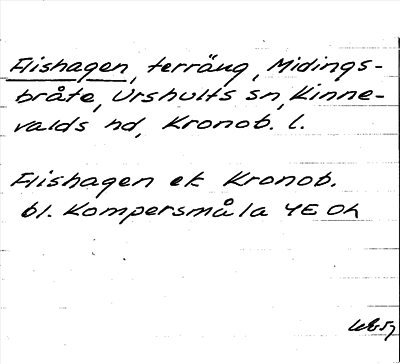 Flishagen, terräng, Midings-
bråte, Urshults sn, Kinne-
valds hd, Kronob. l.
Flishagen ek Kronob.
bl. Kompersmåla 4E Oh